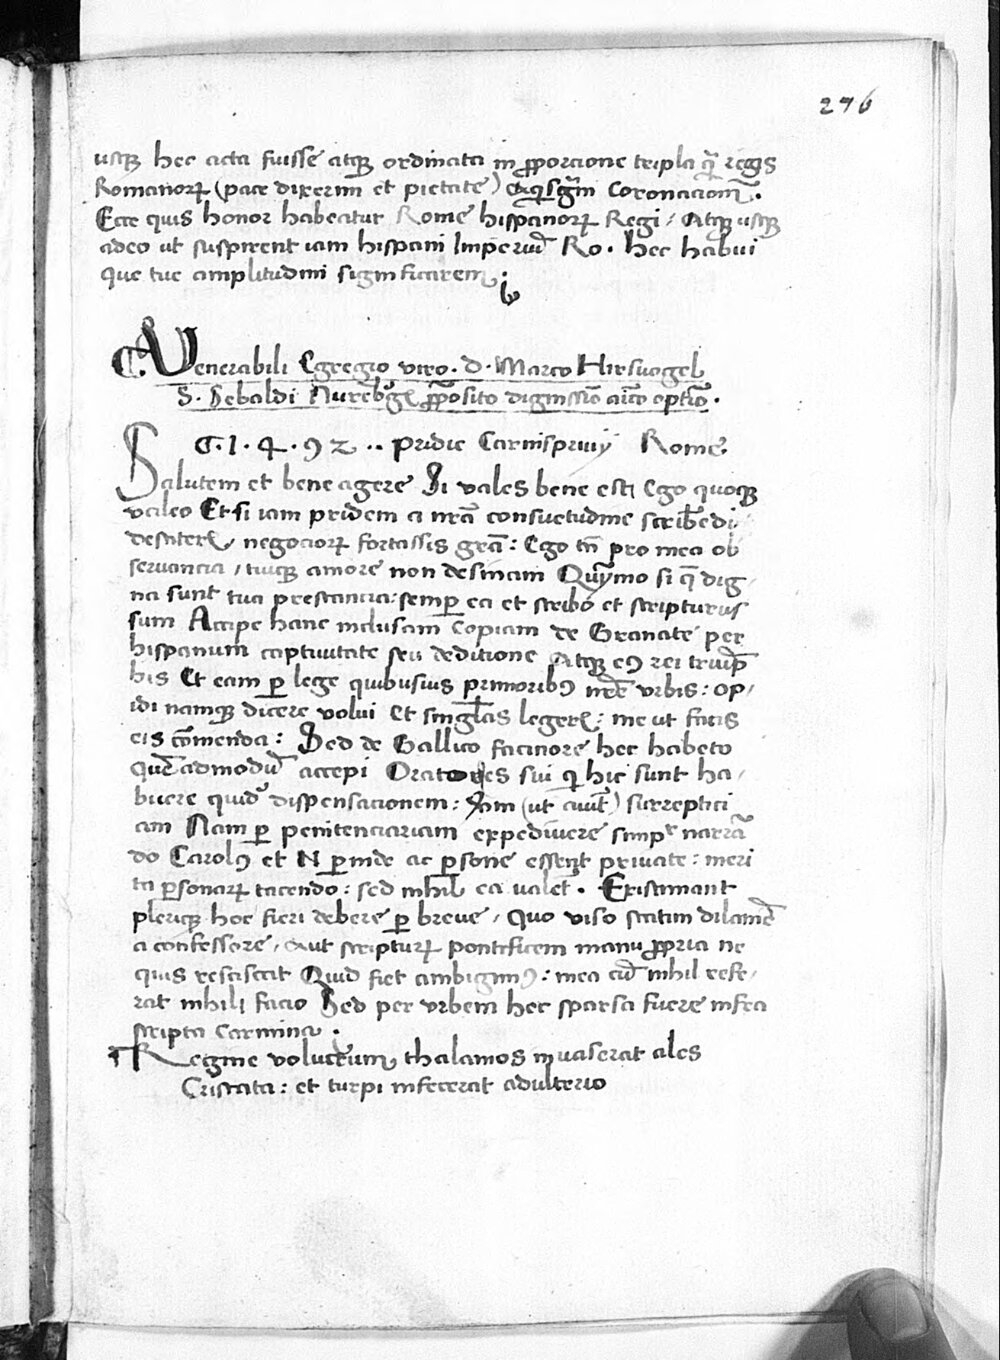 276
usque hec acta fuisse atque ordinata in proporcione tripla quam regis
Romanorum (pace dixerim et pietate) Coronacionem.
Ecce quis honor habeatur Rome hispanorum Regi / Atque usque
adeo ut suspirent iam hispani Imperium Ro. hec habui
que tue amplitudini significarem.
Venerabili Egregio viro. d. Marco Hirsuogel
S. Sebaldi Nurembergensis preposito dignissimo amico optimo.
1.4.9 2 .. pridie Carnisprivij Rome.
Salutem et bene agere Si vales bene est Ego quoque
valeo Et si iam pridem a nostra consuetudine scribendi
desciteris, negociorum fortassis gratia: Ego tamen pro mea ob
servancia / tuique amore non desinam Quinymo si que dig-
na sunt tua prestancia: semper ea et scribo et scripturus
sum Accipe hanc inclusam copiam de Granate per
hispanum captivitate seu dedicione Atque eius rei triump
his Et eam per lege quibusvis primoribus nostre urbis: op/
idi namque dicere volui Et singulas legeris: me ut facis
eis commenda: Sed de Gallico facinore hec habeto
quemadmodum accepi Oratores sui qui hic sunt ha/
buere quidem dispensacionem: Jam (ut aiunt) surreptici
am Nam per penitenciariam expedivere simpliciter narran
do Carolus et N perinde ac persone essent private: meri
ta personarum tacendo: sed nihil ea valent. Existimant
plerique hoc fieri debere per breve / quo viso statim
a confessore, aut scripturum pontificem manu propria ne
quis resciscat Quid fiet ambigimus: mea cum nihil refe/
rat nihili facio Sed per urbem hec sparsa fuere infra
scripta Carmina.
Regine volucrum thalamos invaserat ales
Cristata: et turpi infecerat adulterio